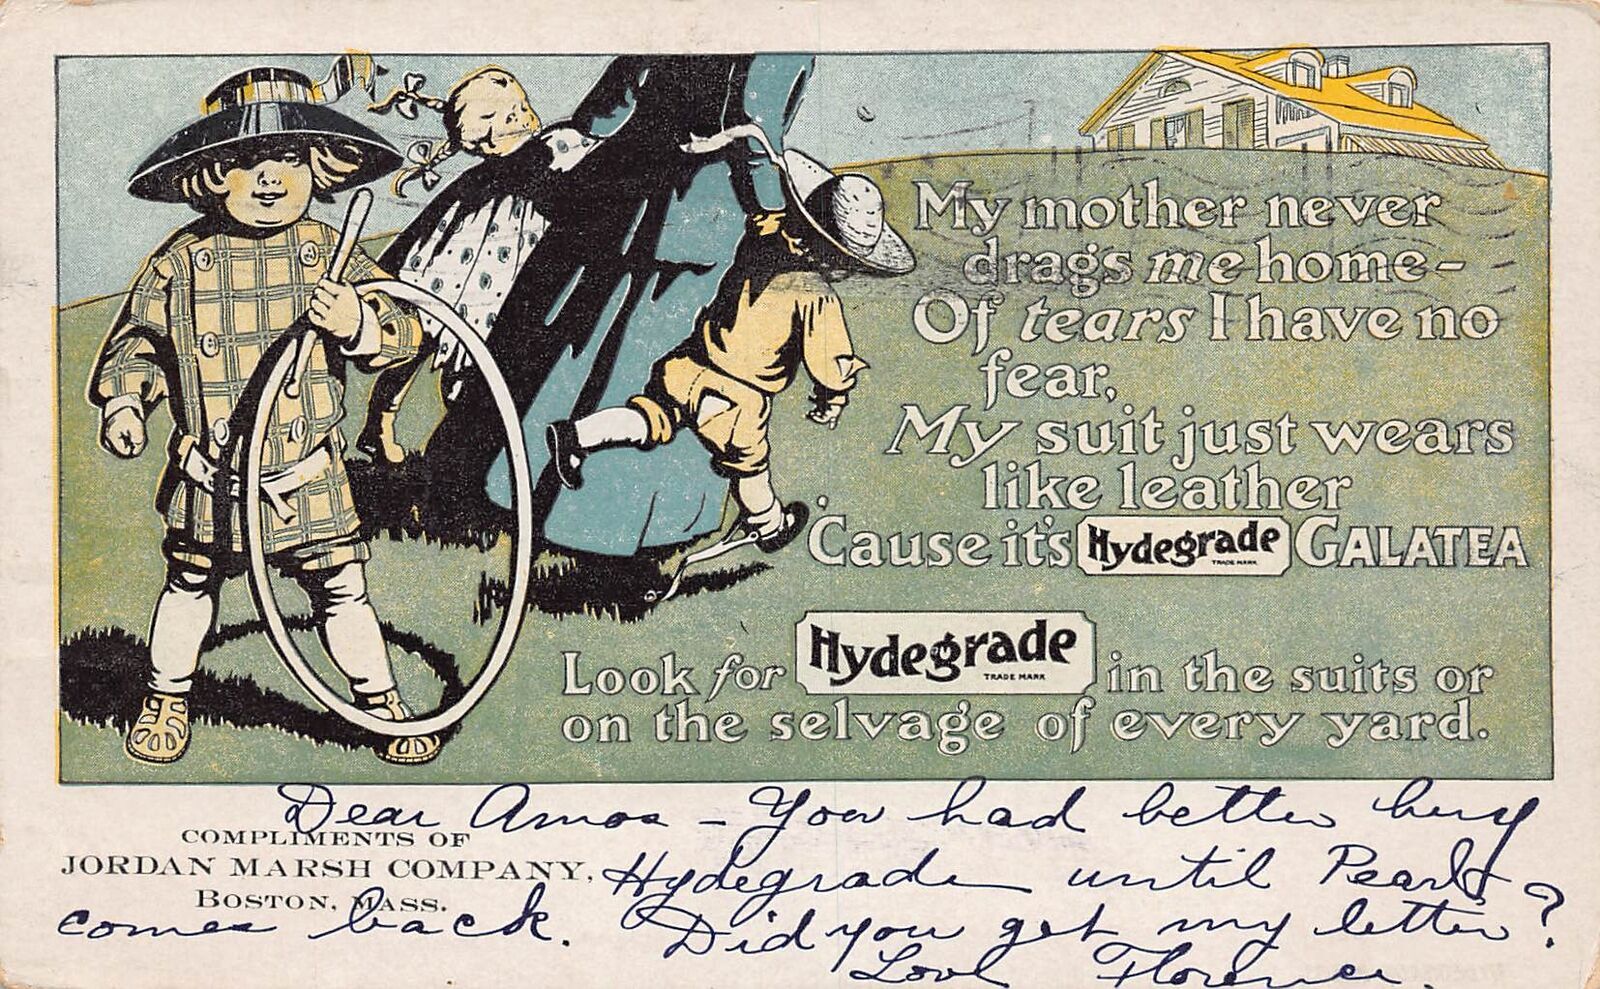 My mother never
drags me home-
Of tears I have no
fear,
My suit just wears
like leather
'Cause it's Hydegrade GALATEA
TRADE MARK
Look for Hydegrade in the suits or
TRADE MARK
on the selvage of every yard.
COMPLIMENTS OF
JORDAN MARSH COMPANY,
BOSTON, MASS.
Dear Amos - You had better buy
Hydegrade until Pearl
comes back. Did you get my letter?
Love Florence.